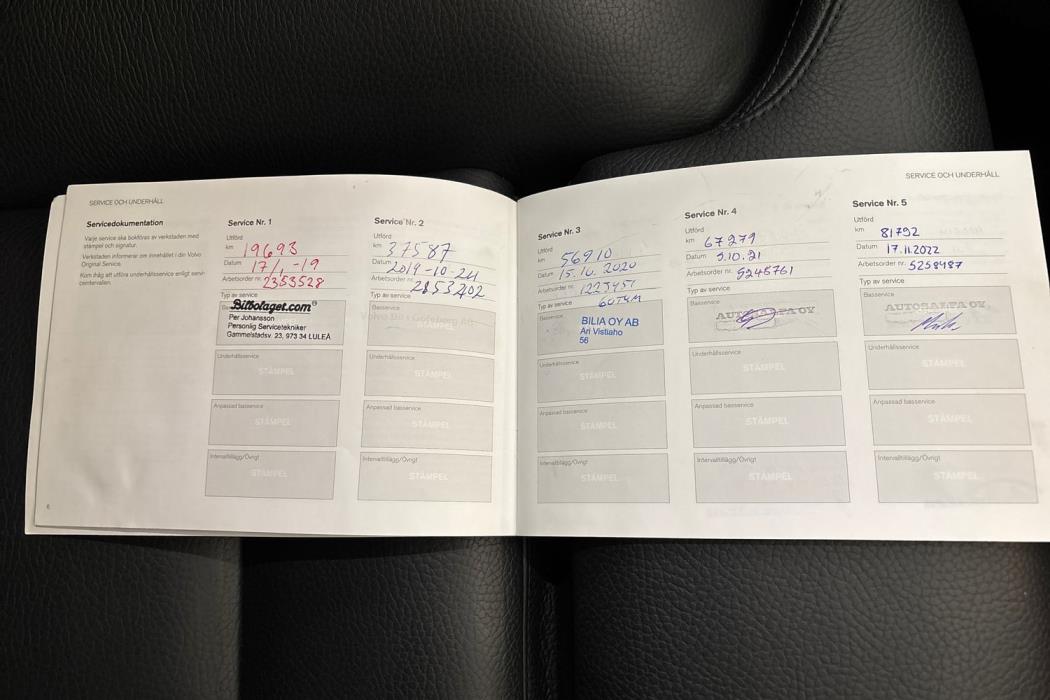 SERVICE OCH UNDERHÅLL
Servicedokumentation
Varje service ska bokföras av verkstaden med
stämpel och signatur.
Verkstaden informerar om innehållet i din Volvo
Original Service.
Kom ihåg att utföra underhållsservice enligt servi-
ceintervallen.
6
Service Nr. 1
Utförd
km 19693
Datum 17/1 -19
Arbetsorder nr. 2353528
Typ av service
Bilbolaget.com
Per Johansson
Personlig Servicetekniker
Gammelstadsv. 23, 973 34 LULEÅ
Underhållsservice
STÄMPEL
Anpassad basservice
STÄMPEL
Intervalltillägg/Övrigt
STÄMPEL
Service Nr. 2
Utförd
km 37587
Datum 2019-10-24
Arbetsorder nr. 2853202
Typ av service
Basservice
Volvo Bil i Göteborg AB
STÄMPEL
Underhållsservice
STÄMPEL
Anpassad basservice
STÄMPEL
Intervalltillägg/Övrigt
STÄMPEL
Service Nr. 3
Utförd
km 56910
Datum 15.10.2020
Arbetsorder nr.
Typ av service
Basservice
BILIA OY AB
Ari Vistiaho
56
Underhållsservice
STÄMPEL
Anpassad basservice
STÄMPEL
Intervalltillägg/Övrigt
STÄMPEL
Service Nr. 4
Utförd
km 67279
Datum 5.10.21
Arbetsorder nr. 5245761
Typ av service
Basservice
Underhållsservice
STÄMPEL
Anpassad basservice
STÄMPEL
Intervalltillägg/Övrigt
STÄMPEL
SERVICE OCH UNDERHÅLL
Service Nr. 5
Utförd
km 81792
Datum 17.11.2022
Arbetsorder nr. 5258487
Typ av service
Basservice
Underhållsservice
STÄMPEL
Anpassad basservice
STÄMPEL
Intervalltillägg/Övrigt
STÄMPEL